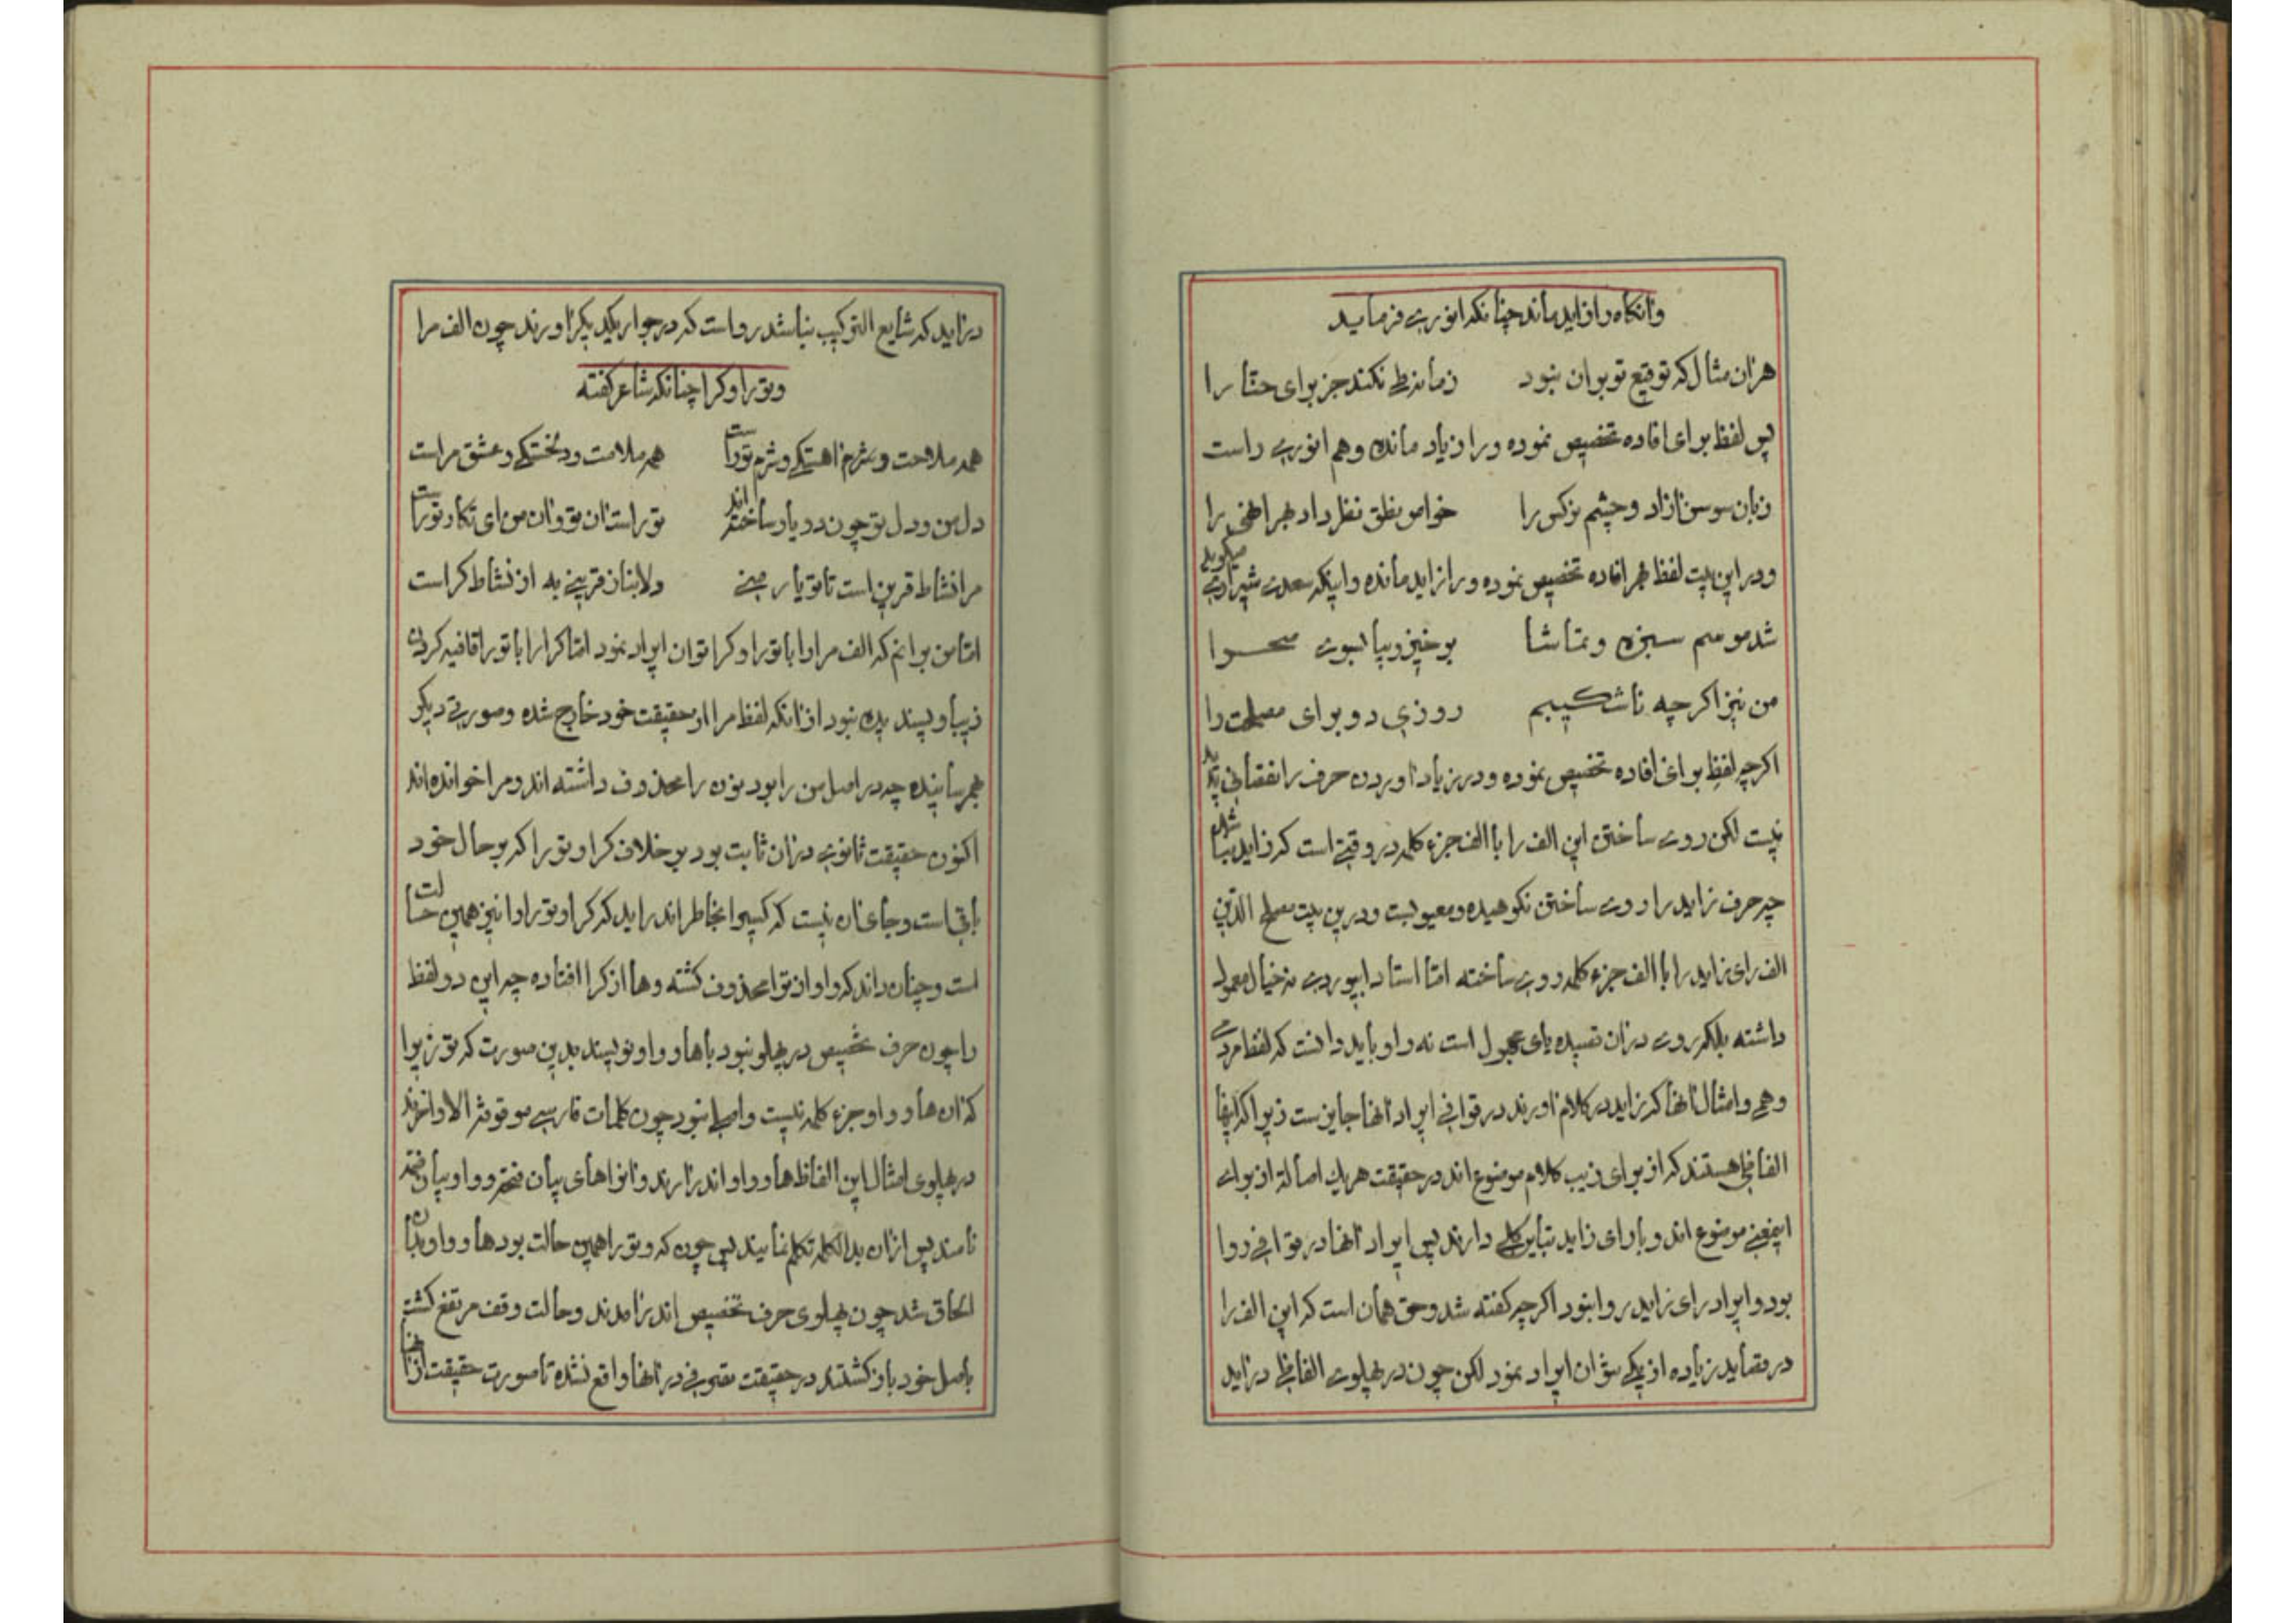 وآنگاه را زاید ماند چنانکه انوری فرماید
هر آن مثال که توقیع تو بر آن نبود زمانه طی نکند جز برای حنا را
پس لفظ برای افاده تخصیص نموده و را زیاد مانده و هم انوری راست
زبان سوسن آزاد و چشم نرگس را خواص نطق و نظر داد بهر انهی را
و در این بیت لفظ بهر افاده تخصیص نموده و را زاید مانده و اینکه سعدی شیرازی میگوید
شد موسم سبزه و تماشا برخیز و بیا بسوی صحرا
من نیز اگرچه ناشکیبم روزی دو برای مصلحت را
اگرچه لفظ برای افاده تخصیص نموده و در زیاد آوردن حرف را نقصانی پدید
نیست لکن روی ساختن این الف را با الف جزء کلمه در وقتی است که زاید نباشد
چه حرف زاید را روی ساختن نکوهیده و معیوبست و درین بیت مصلح الدین
الف رای زاید را با الف جزء کلمه روی ساخته اما استاد ابیوردی نه خیال معمول
داشته بلکه روی در آن قصیده یای مجهول است نه را و باید دانست که لفظ مر
وهمی و امثال آنها که زاید در کلام آورند در قوافی ایراد آنها جایز است زیرا که اینها
الفاظی هستند که از برای زیب کلام موضوع اند در حقیقت هر یک اصالة از برای
اینمعنی موضوع اند و با رای زاید تباین کلی دارند پس ایراد آنها در قوافی روا
بود و ایراد رای زاید روا نبود اگرچه گفته شد و حق همان است که این الف را
در قصاید زیاده از یکی نتوان ایراد نمود لکن چون در پهلوی الفاظی در آید
در آید که شایع الترکیب نباشد رواست که در جوار یکدیگر آورند چون الف مرا
و تو را و کرا چنانکه شاعر گفته
همه ملاحت و شرم آهستگی و شرم تو راست همه ملامت و دلخستگی و عشق مراست
دل من و دل تو چون دو یار ساخته‌اند تو راست آن تو و آن من ای نگار تو راست
مرا نشاط قرین است تا تو یار منی ولا بنان قرینی به از نشاط کراست
اما من برانم که الف مرا را با تو را و کرا توان ایراد نمود اما کرا را با تو را قافیه کردن
زیبا و پسندیده نبود از آنکه لفظ مرا از حقیقت خود خارج شده و صورتی دیگر
بهم رسانیده چه در اصل من را بود نون را محذوف داشته اند و مرا خوانده اند
اکنون حقیقت ثانوی در آن ثابت بود بر خلاف کرا و تو را که بر حال خود
باقی است و جای آن نیست که کسیرا بخاطر اندر آید که کرا و تو را را نیز همین حالت
است و چنان داند که واو از ترا محذوف گشته و ها از کرا افتاده چه این دو لفظ
را چون حرف تخصیص در پهلو نبود با ها و واو نویسند بدین صورت که تو زیرا
که آن ها و واو جزء کلمه نیست و اصلی نبود چون کلمات فارسی موقوفة الاواخرند
در پهلوی امثال این الفاظ ها و واو اندر آرند و آنرا های بیان فتحه و واو بیان ضمه
نامند پس از آن بدان کلمه تکلم نمایند پس چون که و تو را همین حالت بود ها و واو بدان
الحاق شد چون پهلوی حرف تخصیص اندر آمدند و حالت وقف مرتفع گشت
باصل خود باز گشتند در حقیقت تصرفی در آنها واقع نشده تا صورت حقیقت از آنها